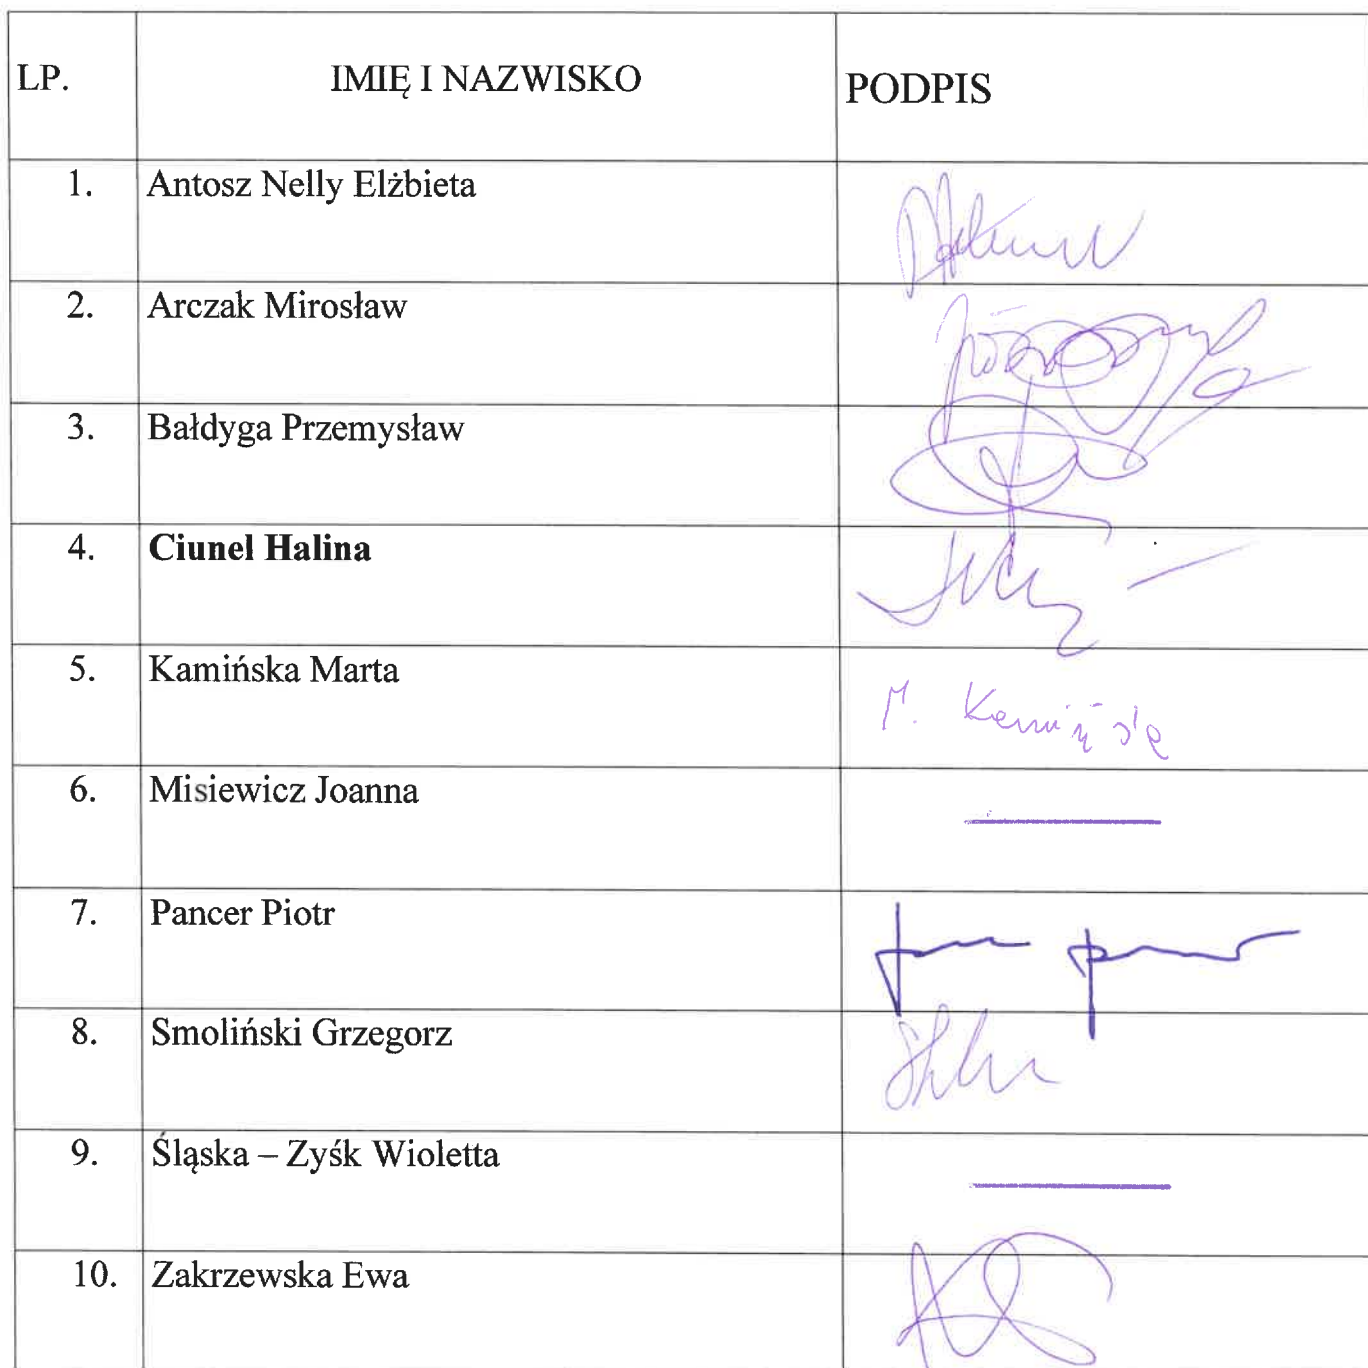 LP. IMIĘ I NAZWISKO PODPIS
1. Antosz Nelly Elżbieta
2. Arczak Mirosław
3. Bałdyga Przemysław
4. Ciunel Halina
5. Kamińska Marta M. Kamińska
6. Misiewicz Joanna
7. Pancer Piotr
8. Smoliński Grzegorz
9. Śląska – Zyśk Wioletta
10. Zakrzewska Ewa